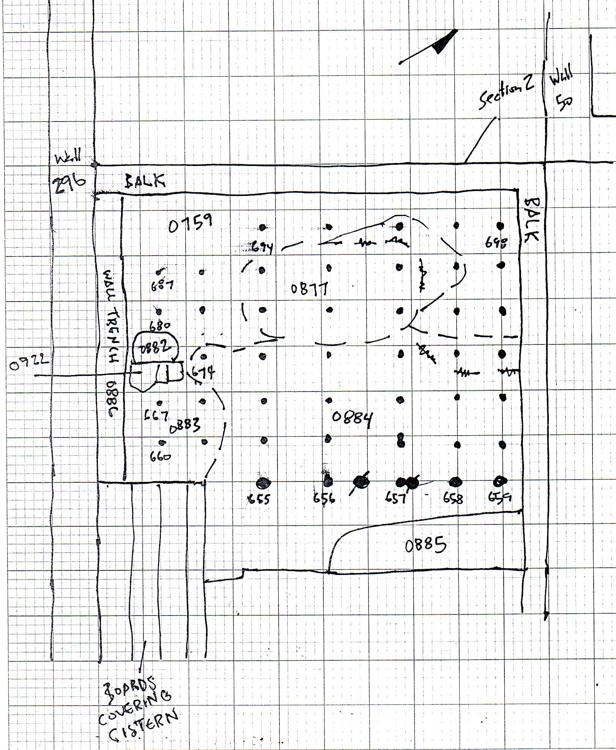 Section 2
Wall
50
Wall
296
BALK
BALK
0759
694
698
687
0877
WALL TRENCH 0886
680
0882
0922
674
667
0883
0884
660
655
656
657
658
659
0885
BOARDS
COVERING
CISTERN